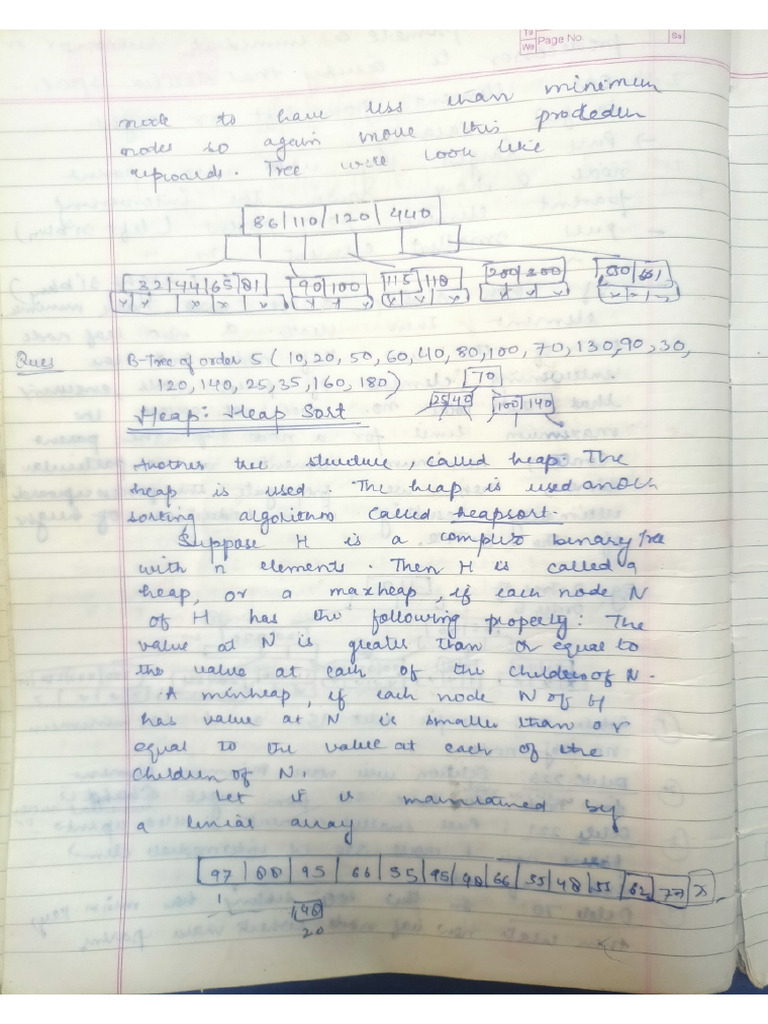 Page No.
node to have less than minimum
nodes so again move this
upwards. Tree will look like
86 110 120 440
32 44 65 81 90 100 115 118 200
Ques B-Tree of order 5 (10, 20, 50, 60, 40, 80, 100, 70, 130, 90, 30,
120, 140, 25, 35, 160, 180)
70
25 40 100 140
Heap: Heap Sort
Another tree structure, called heap. The
heap is used. The heap is used in
sorting algorithm called heapsort.
Suppose H is a complete binary tree
with n elements. Then H is called a
heap, or a maxheap, if each node N
of H has the following property: The
value at N is greater than or equal to
the value at each of the children of N.
A minheap, if each node N of H
has value at N is smaller than or
equal to the value at each of the
children of N.
Let it is maintained by
a linear array
97 88 95 66 55 95 48 66 35 48 55 62 77 X
1
48
20